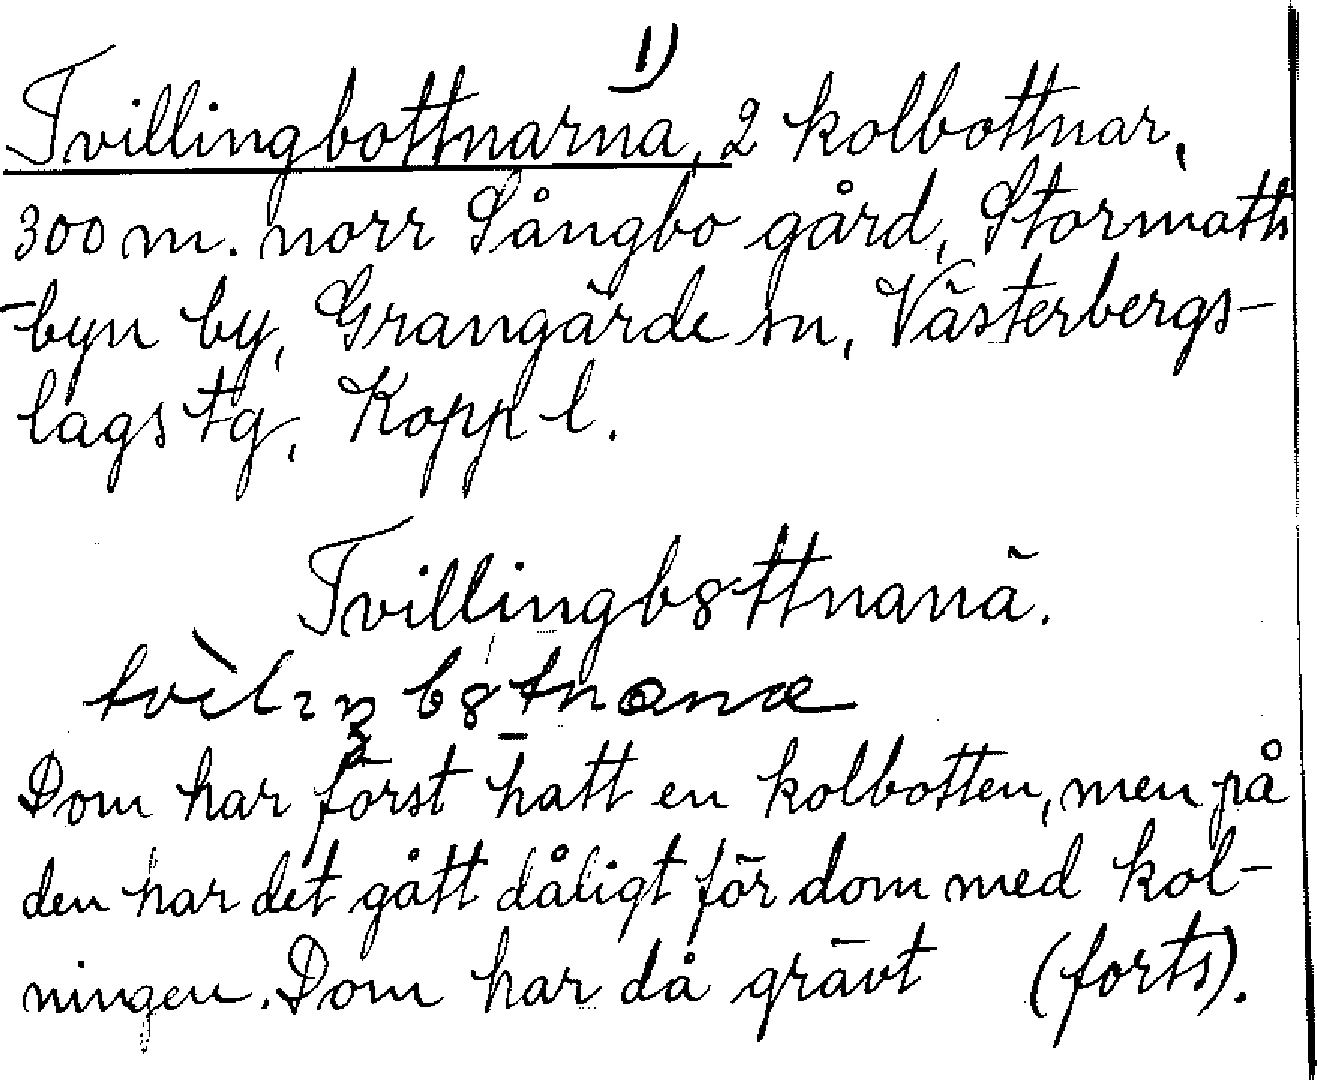 1)
Tvillingbottnarna, 2 kolbottnar,
300 m. norr Sångbo gård, Stormats
-byn by, Grangärde sn, Västerbergs-
lags tg, Kopp l.
Tvillingb8ttnanä.
Dom har först hatt en kolbotten, men på
den har det gått dåligt för dom med kol-
ningen. Dom har då grävt (forts).